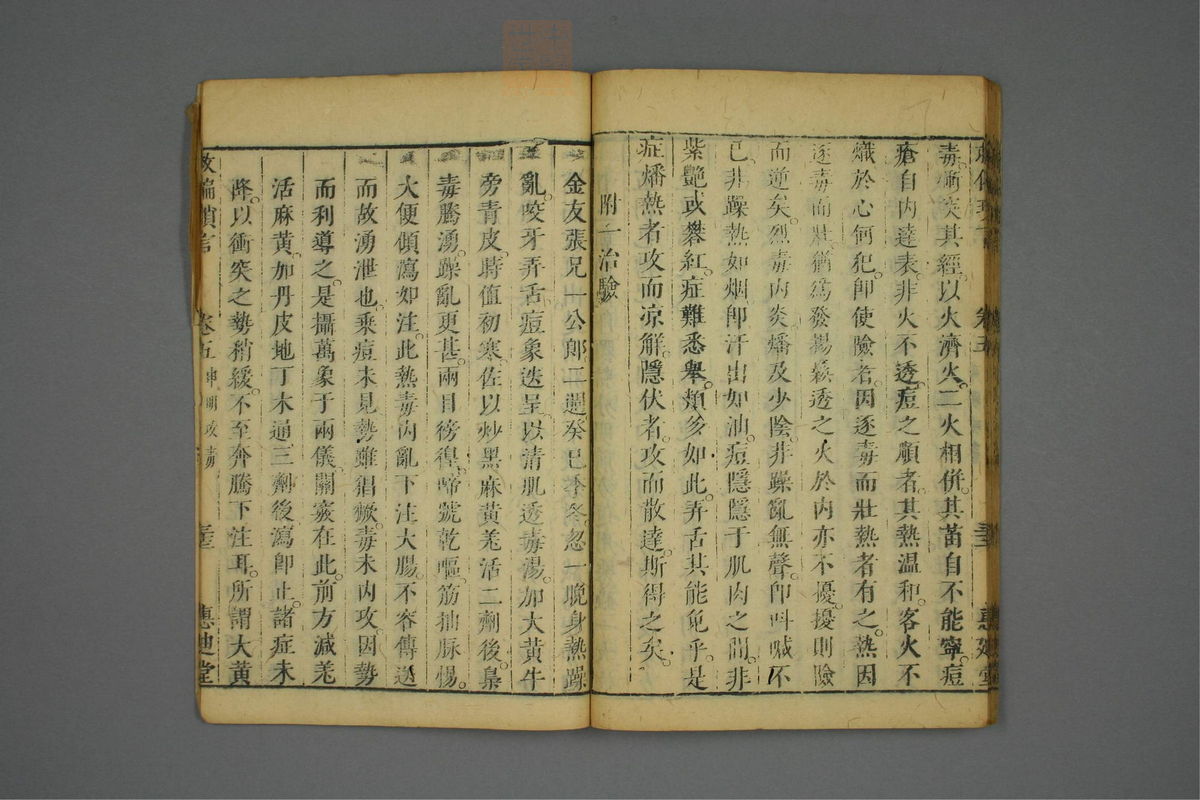 毒衝突其經以火濟火二火相併其蓄自不能寧痘
瘡自內達表非火不透痘之順者其熱溫和客火不
熾於心何犯卽使險者因逐毒而壯熱者有之熱因
逐毒而壯猶爲發揚鬆透之火於內亦不擾擾則險
而逆矣烈毒內炎燔及少陰非躁亂無聲卽叫喊不
已非躁熱如烟卽汗出如油痘隱隱于肌肉之間非
紫艷或礬紅症難悉舉類多如此弄舌其能免乎是
症燔熱者攻而凉解隱伏者攻而散達斯得之矣
附一治驗
金友張兄一公郎二週癸巳季冬忽一晚身熱躁
亂咬牙弄舌痘象迭呈以清肌透毒湯加大黃牛
旁青皮時值初寒佐以炒黑麻黃羌活二劑後梟
毒騰湧躁亂更甚兩目徬徨啼號乾嘔筋抽脉惕
大便傾瀉如注此熱毒內亂下注大腸不容傳送
而故湧泄也乘痘未見勢雖猖獗毒未內攻因勢
而利導之是攝萬象于兩儀關竅在此前方減羌
活麻黃加丹皮地丁木通三劑後瀉卽止諸症未
降以衝突之勢稍緩不至奔騰下注耳所謂大黃
救偏瑣言 卷五 神明攻毒 惠迪堂